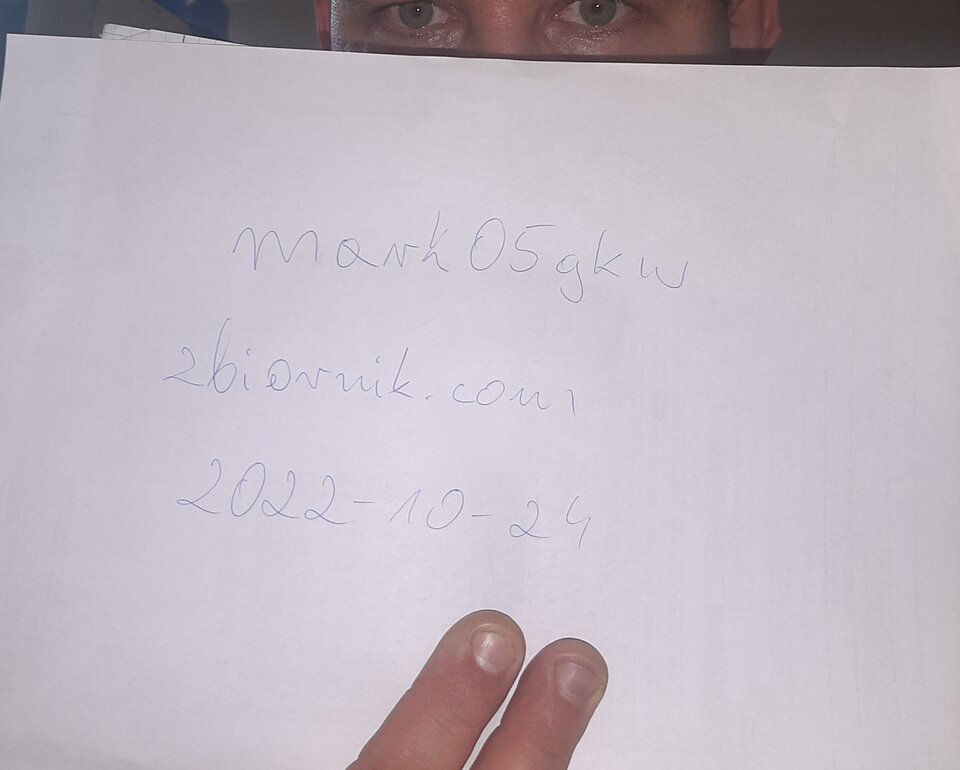 mark05gkw
zbiornik.com
2022-10-24